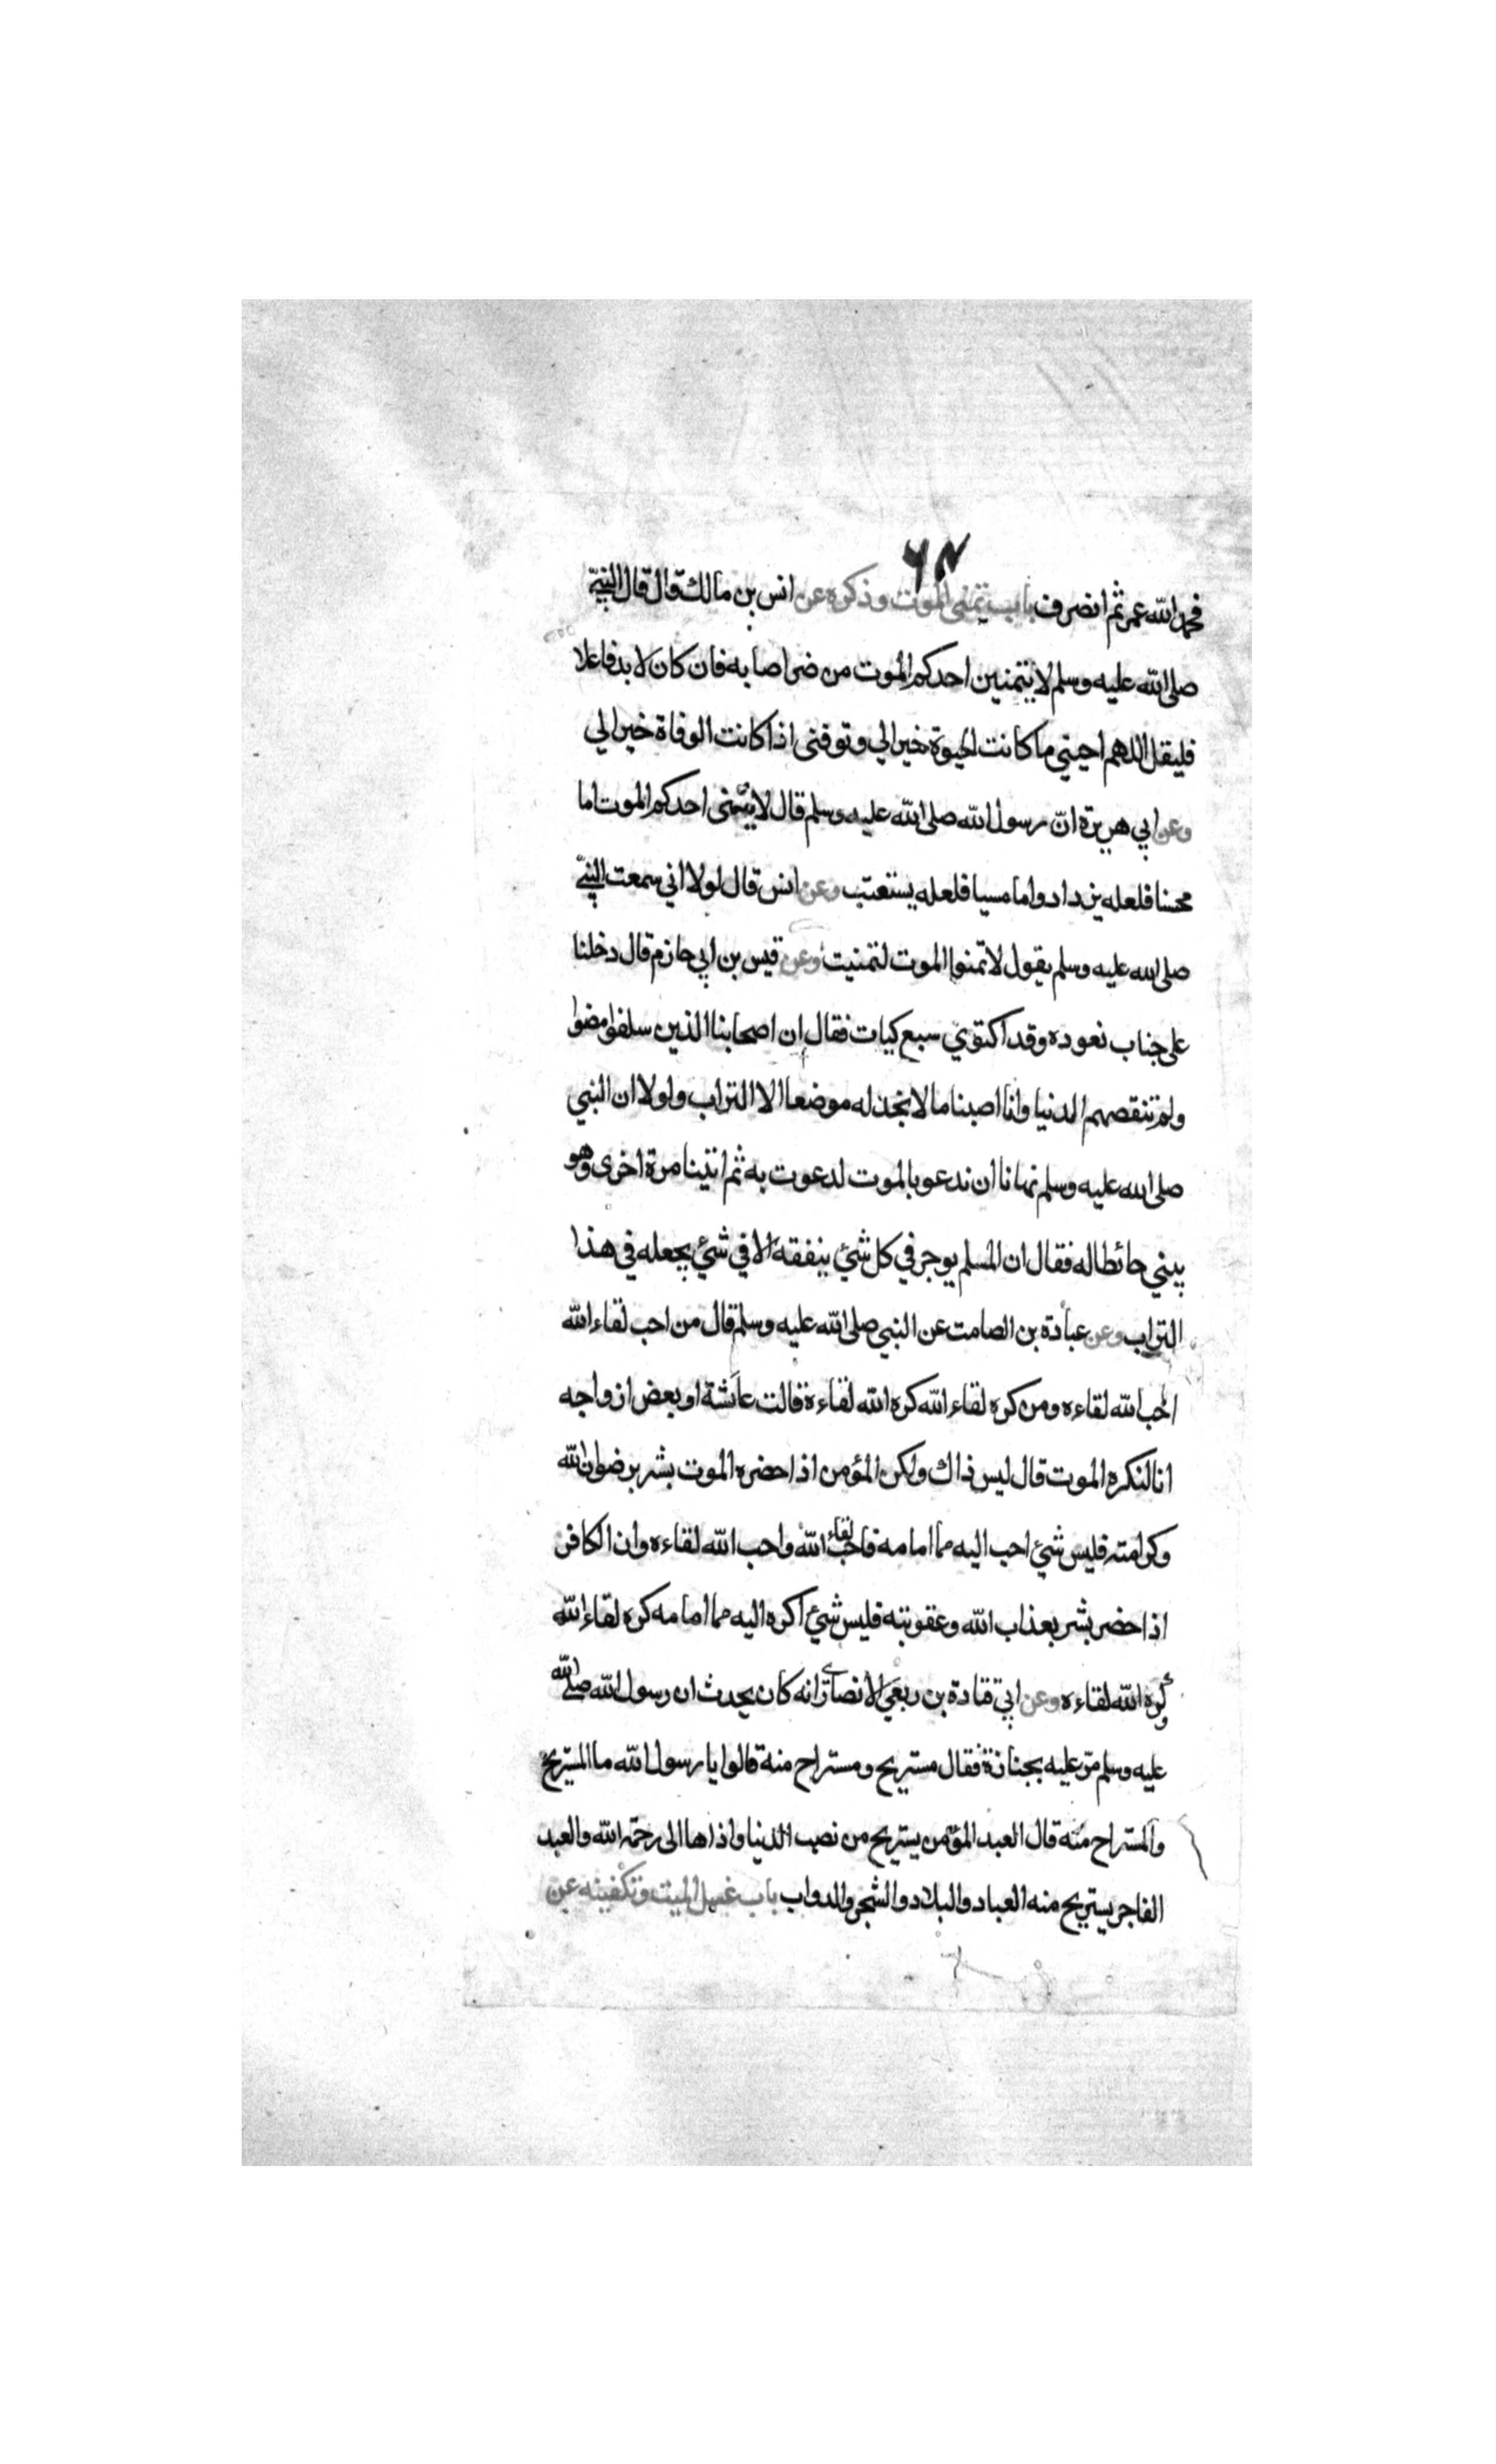 ٦٨
فحمد الله عمر ثم انصرف باب تمني الموت وذكره عن انس بن مالك قال قال النبي
صلى الله عليه وسلم لا يتمنين احدكم الموت من ضر اصابه فان كان لا بد فاعلا
فليقل اللهم احيني ما كانت الحيوة خيرا لي وتوفنى اذا كانت الوفاة خيرا لي
وعن ابي هريرة انّ رسول الله صلى الله عليه وسلم قال لا يتمنى احدكم الموت اما
محسنا فلعله يزداد واما مسيا فلعله يستعتب وعن انس قال لولا اني سمعت النبي
صلى الله عليه وسلم يقول لا تمنوا الموت لتمنيت وعن قيس بن ابي حازم قال دخلنا
على خباب نعوده وقد اكتوي سبع كيات فقال ان اصحابنا الذين سلفوا مضوا
ولم تنقصهم الدنيا وانا اصبنا ما لا نجد له موضعا الا التراب ولولا ان النبي
صلى الله عليه وسلم نهانا ان ندعو بالموت لدعوت به ثم اتينا مرة اخرى وهو
يبني حائطا له فقال ان المسلم يوجر في كل شئ ينفقه الا في شئ يجعله في هذا
التراب وعن عبادة بن الصامت عن النبي صلى الله عليه وسلم قال من احب لقاء الله
احب الله لقاءه ومن كره لقاء الله كره الله لقاءه قالت عائشة او بعض ازواجه
انا لنكره الموت قال ليس ذاك ولكن المؤمن اذا حضره الموت بشر برضوان الله
وكرامته فليس شئ احب اليه مما امامه فاحب لقاء الله واحب الله لقاءه وان الكافر
اذا حضر بشر بعذاب الله وعقوبته فليس شئ اكره اليه مما امامه كره لقاء الله
وكره الله لقاءه وعن ابي قتادة بن ربعي الانصاري انه كان يحدث ان رسول الله صلى الله
عليه وسلم مرّ عليه بجنازة فقال مستريح ومستراح منه قالوا يا رسول الله ما المستريح
والمستراح منه قال العبد المؤمن يستريح من نصب الدنيا واذاها الى رحمة الله والعبد
الفاجر يستريح منه العباد والبلاد والشجر والدواب باب غسل الميت وتكفينه عن